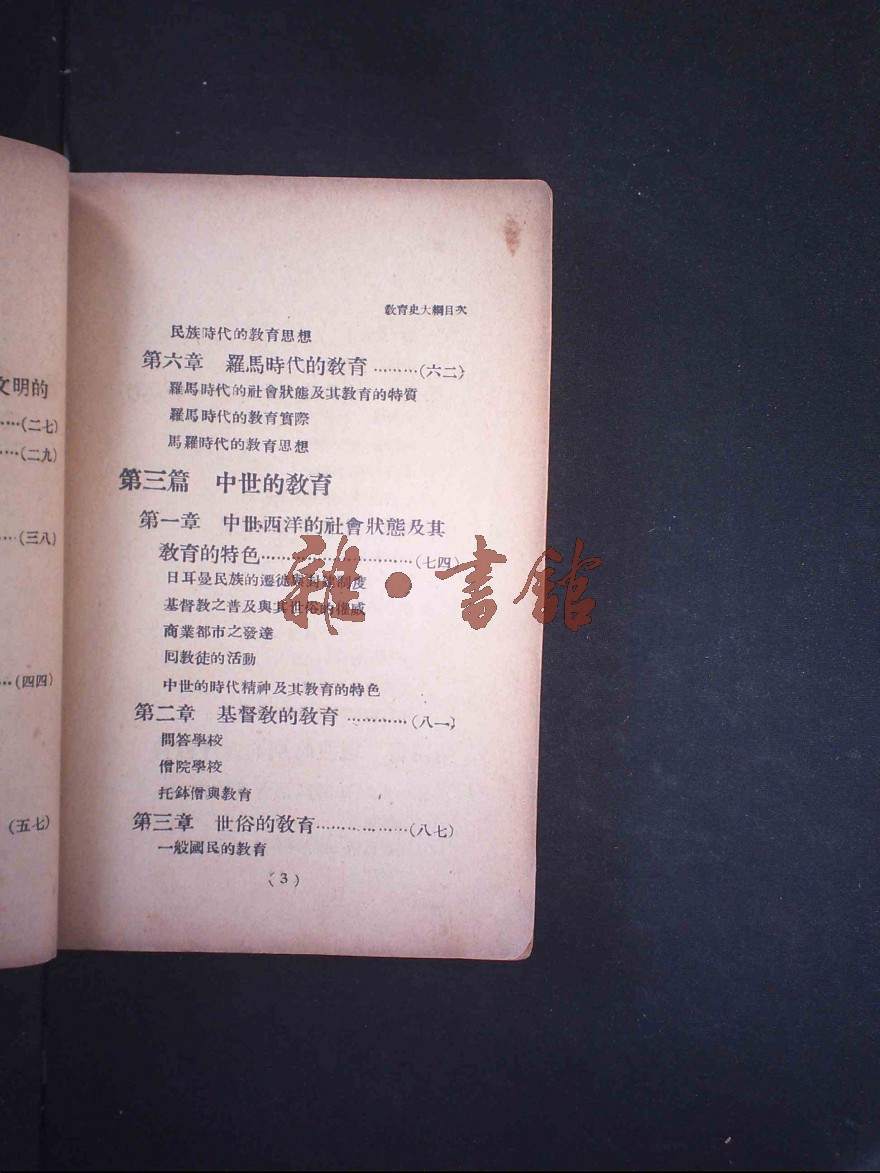 文明的
……(二七)
……(二九)
……(三八)
……(四四)
(五七)
教育史大綱目次
民族時代的教育思想
第六章　羅馬時代的教育………(六二)
羅馬時代的社會狀態及其教育的特質
羅馬時代的教育實際
馬羅時代的教育思想
第三篇　中世的教育
第一章　中世西洋的社會狀態及其
教育的特色…………………………(七四)
日耳曼民族的遷徙與封建制度
基督教之普及與其世俗的權威
商業都市之發達
囘教徒的活動
中世的時代精神及其教育的特色
第二章　基督教的教育…………(八一)
問答學校
僧院學校
托鉢僧與教育
第三章　世俗的教育………………(八七)
一般國民的教育
(3)
雜·書館